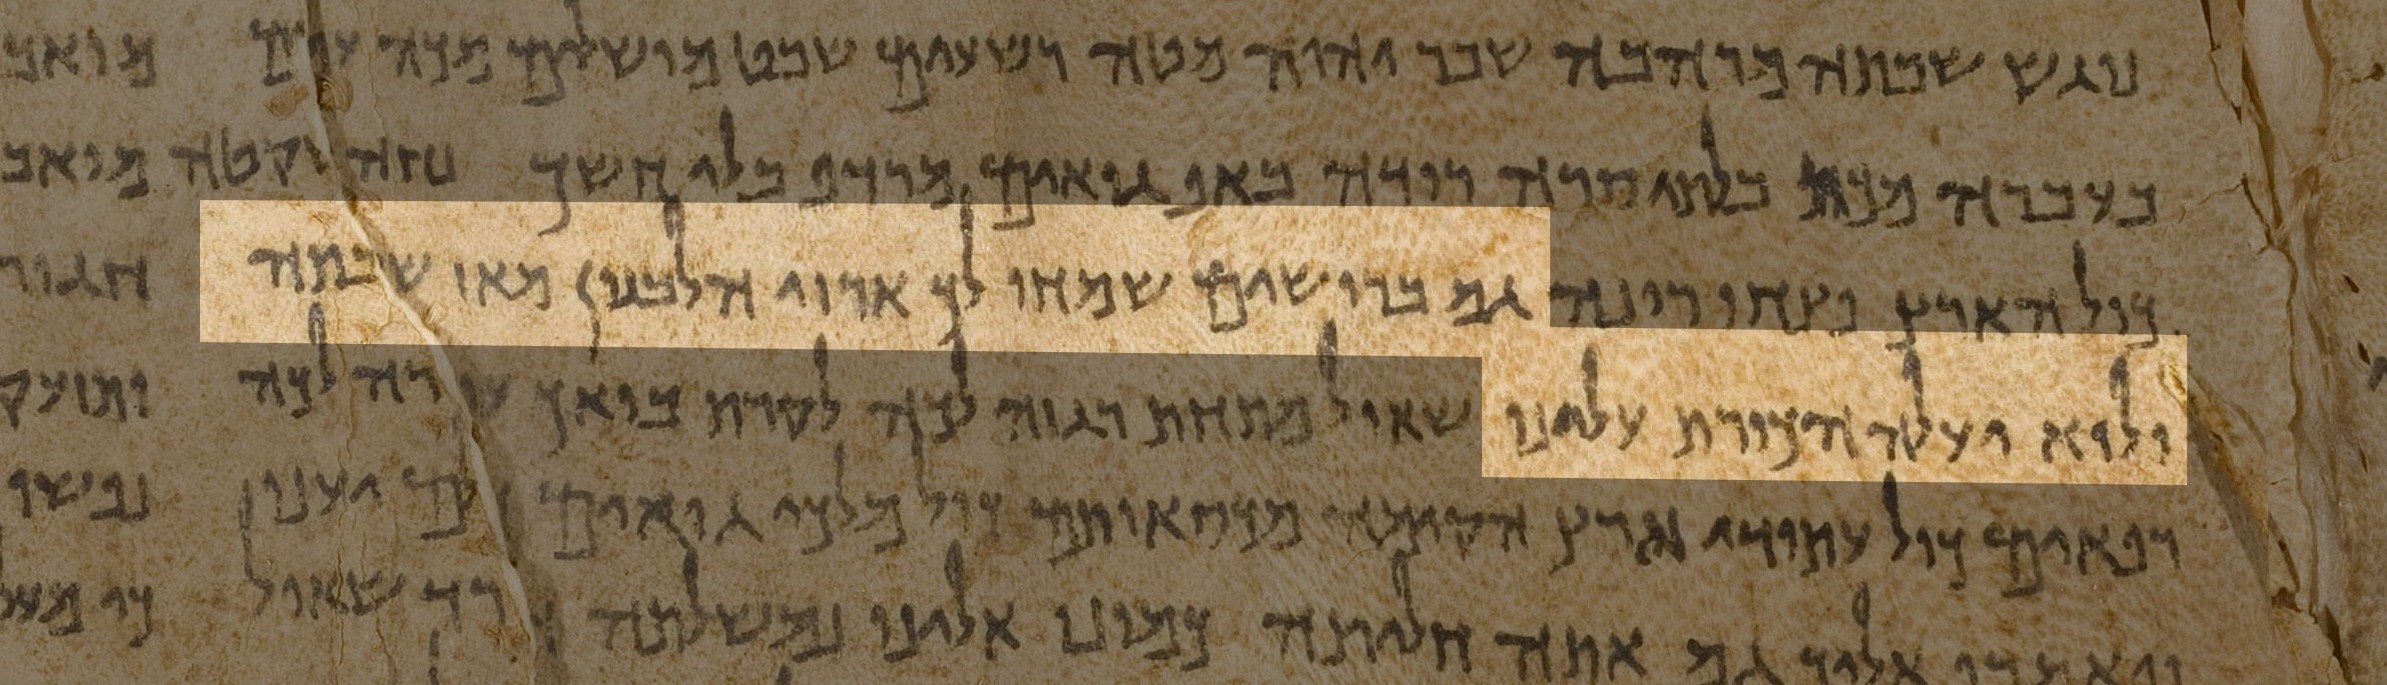 נגש שבתה מרהבה שבר יהוה מטה רשעים שבט מושלים מכה עמים
בעברה מכת בלתי סרה רודה באף גואים מרדף בלי חשך נחה שקטה
כול הארץ פצחו רינה גם ברושים שמחו לך ארזי הלבנון מאז שכבתה
ולוא יעלה הכורת עלינו שאול מתחת רגזה לכה לקרת בואך עוררה לכה
רפאים כול עתודי ארץ הקימה מכסאותם כול מלכי גואים כולם יענו
ויאמרו אליך גם אתה חליתה כמונו אלינו נמשלתה הורד שאול